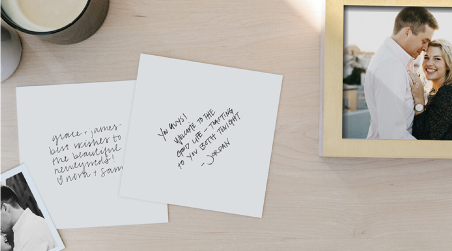 grace + james-
best wishes to
the beautiful
newlyweds!
nora + sam
YOU GUYS!
WELCOME TO THE
GOOD LIFE - TOASTING
TO YOU BOTH TONIGHT
- JORDAN